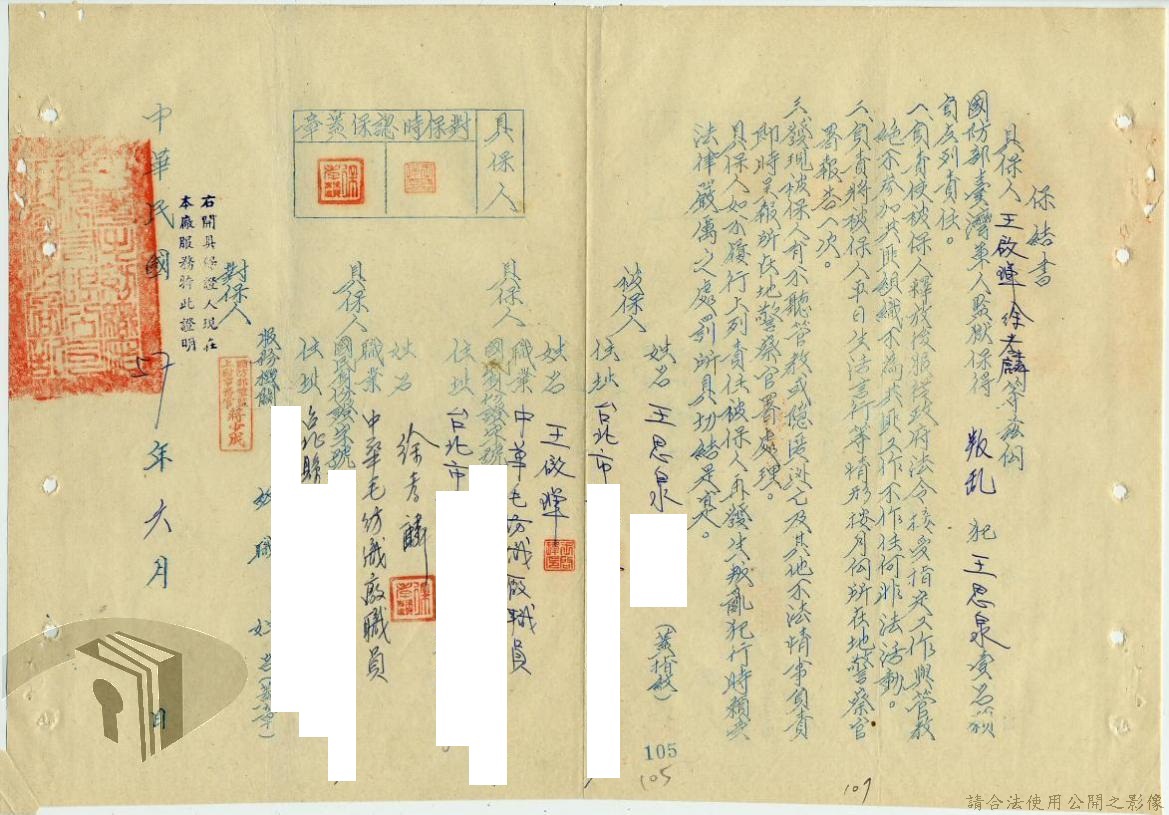 保結書
具保人 王啟暉 徐孝麟 等茲向
國防部臺灣軍人監獄保得 叛乱 犯 王思泉 壹名願
負左列責任。
一、負責使被保人釋放後服從政府法令接受指定工作與管教
絕不參加共匪組織不為共匪工作不作任何非法活動。
二、負責將被保人平日生活言行等情形按月向所在地警察官
署報告一次。
三、發現被保人有不聽管教或隱匿逃亡及其他不法情事負責
即時呈報所在地警察官署處理。
具保人如不履行上列責任被保人再發生叛亂犯行時願受
法律嚴厲之處罰所具切結是實。
被保人 姓名 王思泉 (蓋指紋)
住址 台北市
具保人 姓名 王啟暉
職業 中華毛紡織廠職員
國民身份證 號
住址 台北市
具保人 姓名 徐孝麟
職業 中華毛紡織廠職員
國民身份證 號
住址 台北縣
對保人 服務機關 職 (蓋章)
具保人
對保時認保蓋章
右開具保證人現在
本廠服務特此證明
中華民國 57 年 六 月 日
105
105
107
請合法使用公開之影像